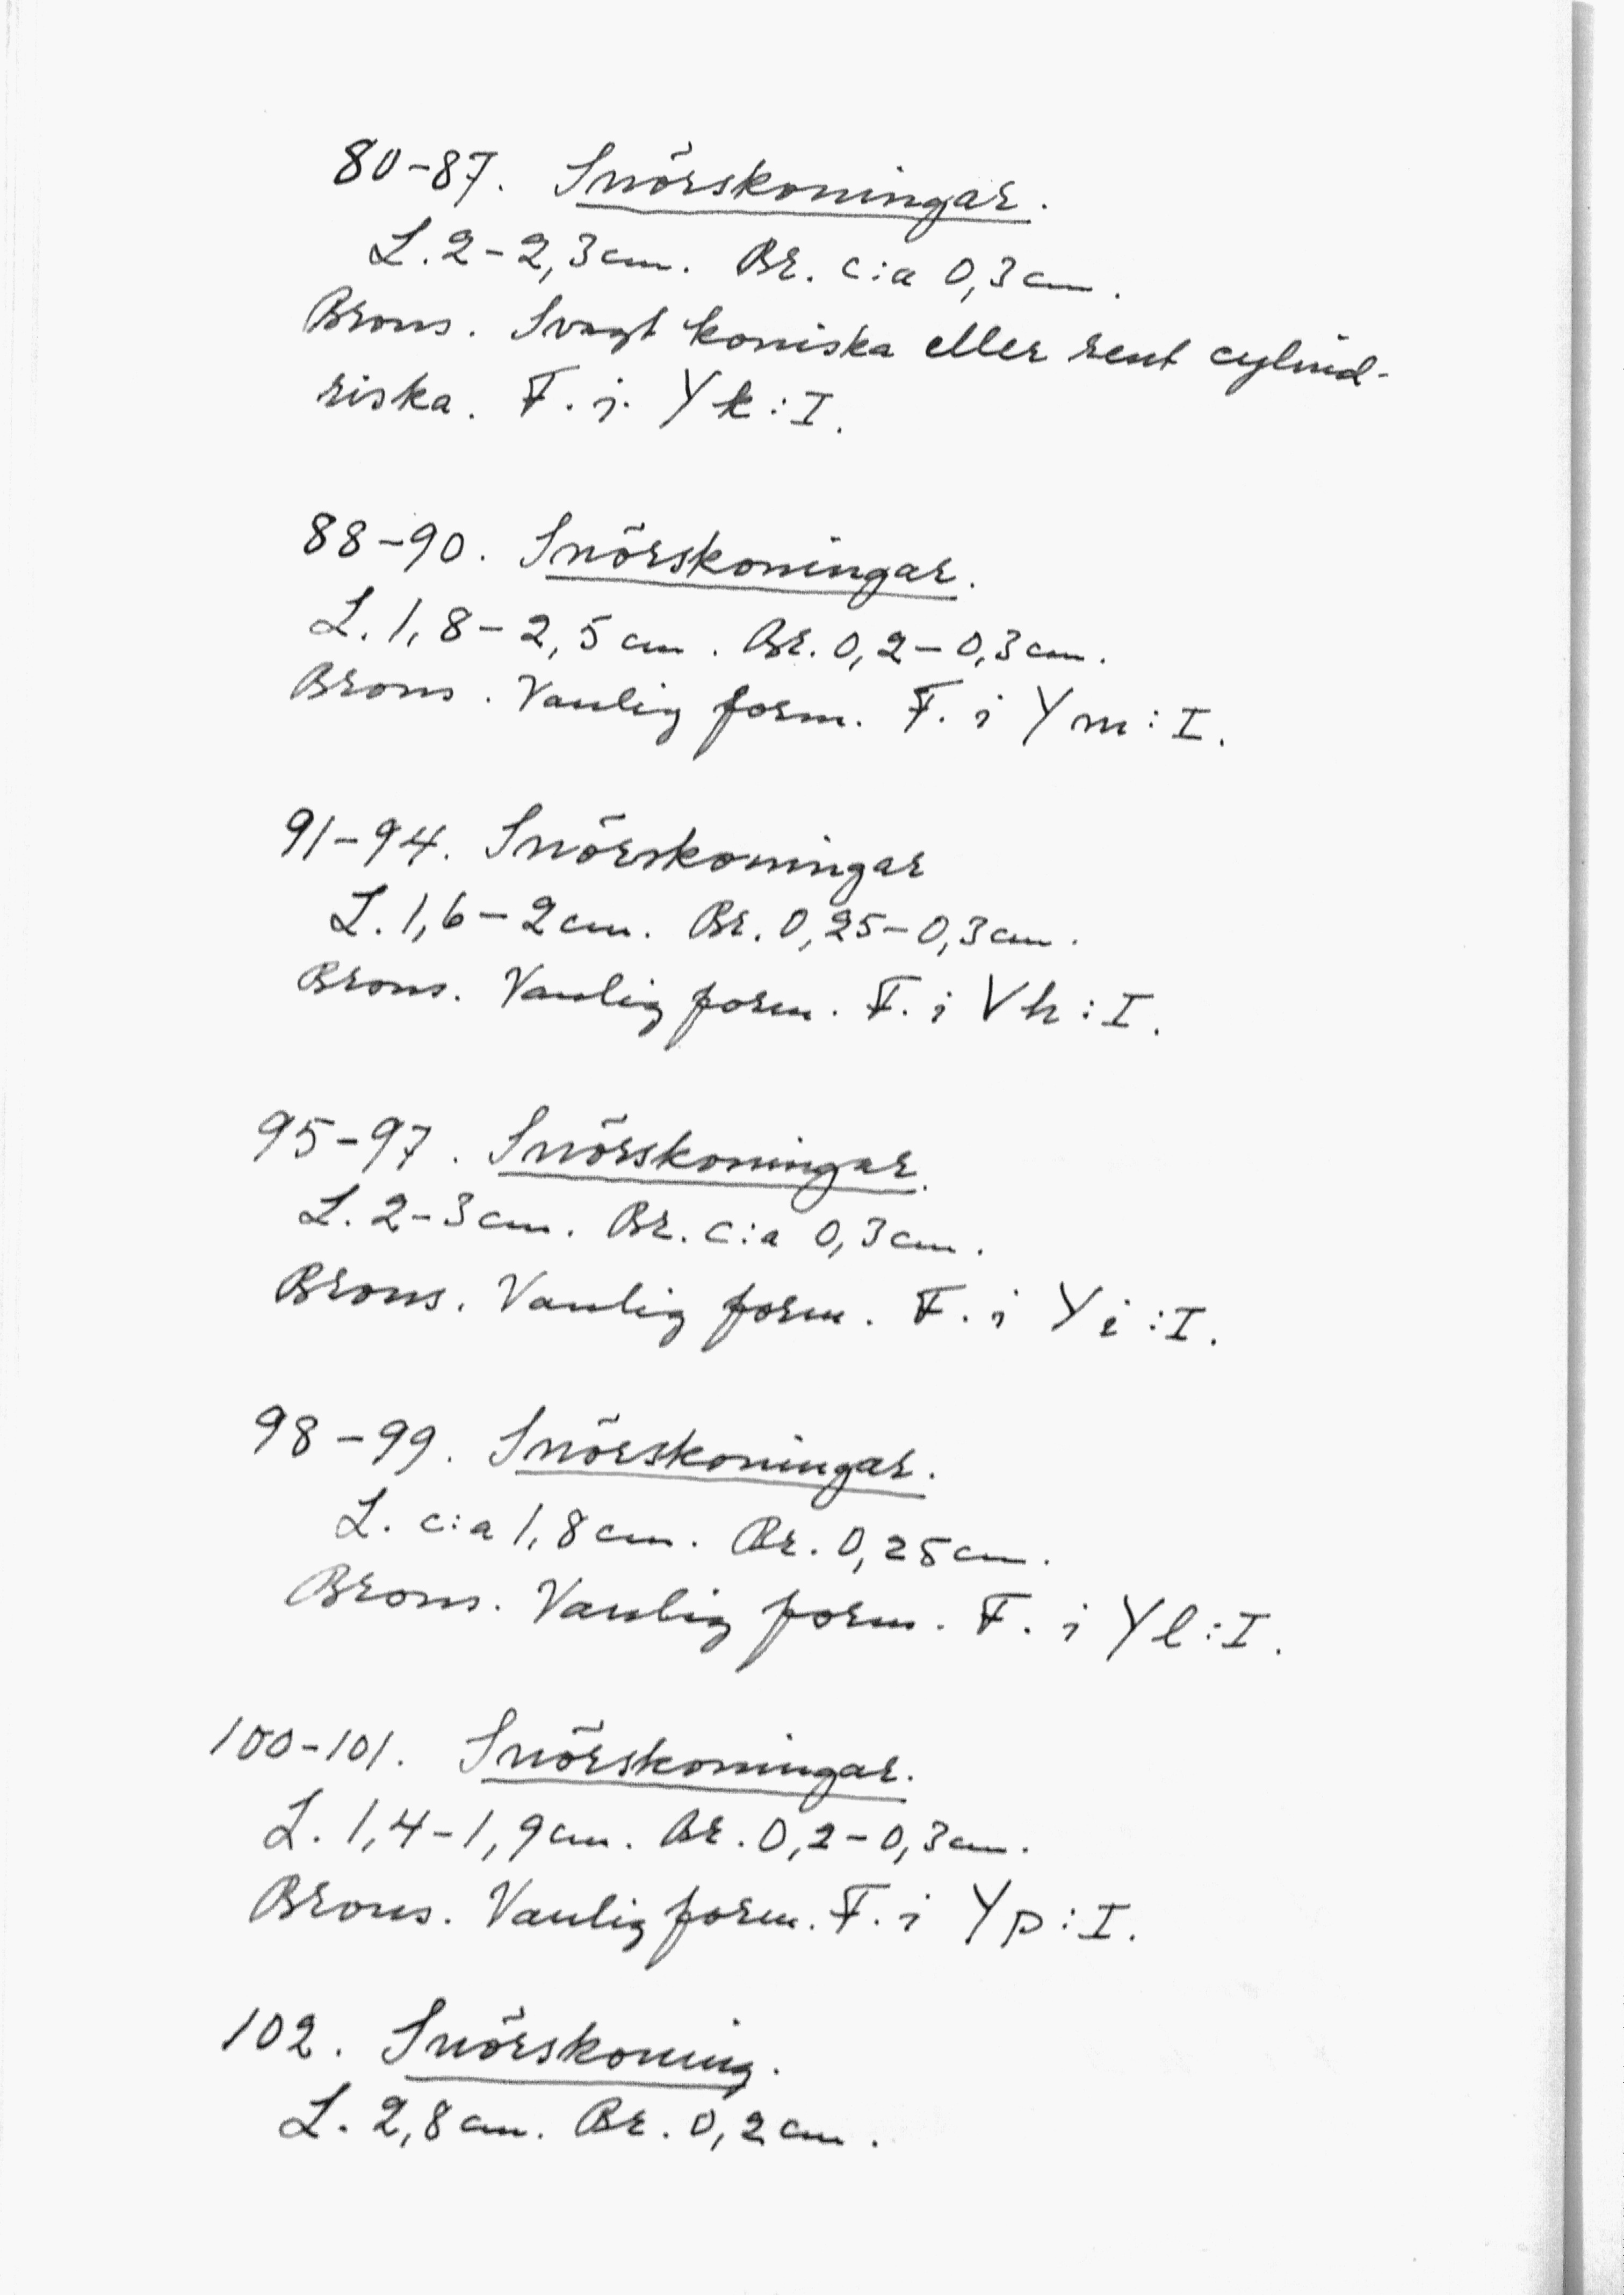 80-87. Snörskoningar.
L. 2-2,3 cm. Br. c:a 0,3 cm.
Brons. Svagt koniska eller rent cylind-
riska. F. i. Yk:I.
88-90. Snörskoningar.
L. 1,8-2,5 cm. Br. 0,2-0,3 cm.
Brons. Vanlig form. F. i Ym:I.
91-94. Snörskoningar
L. 1,6-2 cm. Br. 0,25-0,3 cm.
Brons. Vanlig form. F. i Vh:I.
95-97. Snörskoningar.
L. 2-3 cm. Br. c:a 0,3 cm.
Brons. Vanlig form. F. i Yi:I.
98-99. Snörskoningar.
L. c:a 1,8 cm. Br. 0,25 cm.
Brons. Vanlig form. F. i Yl:I.
100-101. Snörskoningar.
L. 1,4-1,9 cm. Br. 0,2-0,3 cm.
Brons. Vanlig form. F. i Yp:I.
102. Snörskoning.
L. 2,8 cm. Br. 0,2 cm.